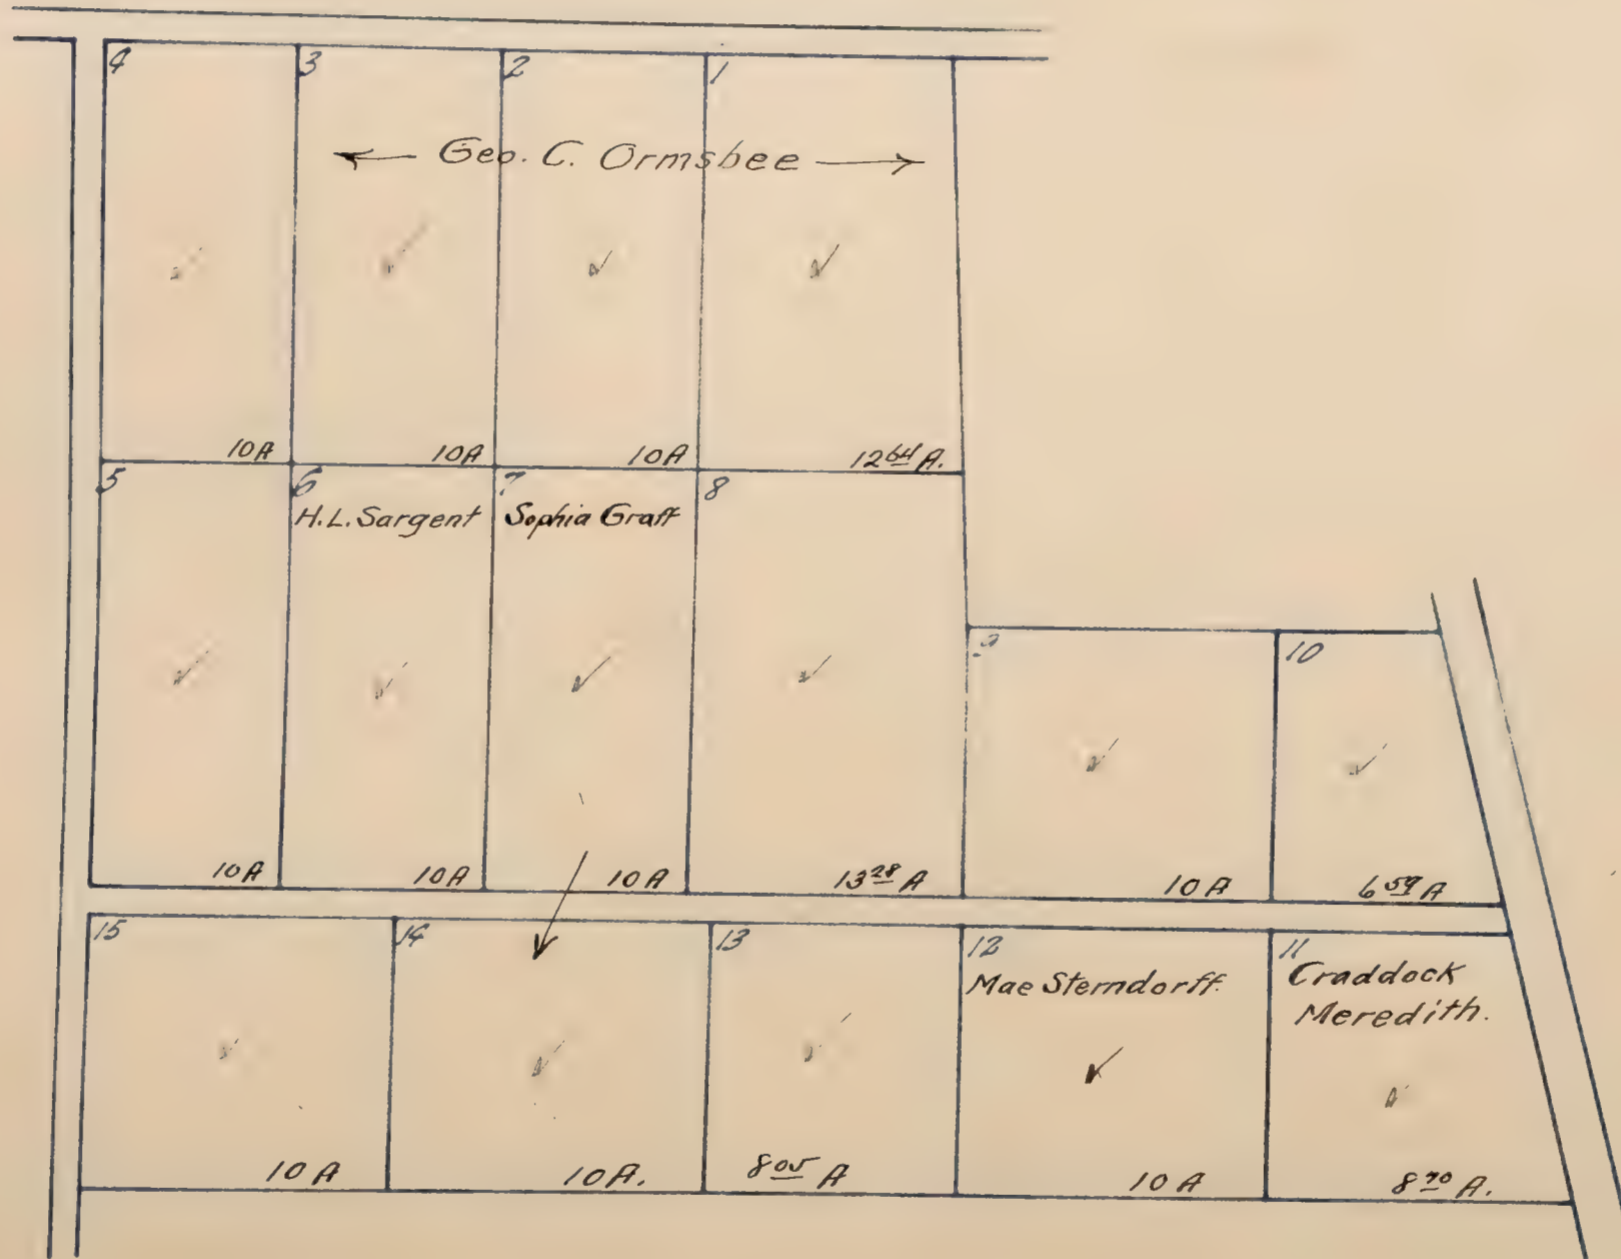 4 3 2 1
← Geo. C. Ormsbee →
10A 10A 10A 12 64 A.
5 6 7 8
H.L. Sargent Sophia Graff
9 10
10A 10A 10A 13 28 A 10 A 6 59 A
15 14 13 12 11
Mae Sterndorff. Craddock
Meredith.
10 A 10 A. 8 05 A 10 A 8 70 A.